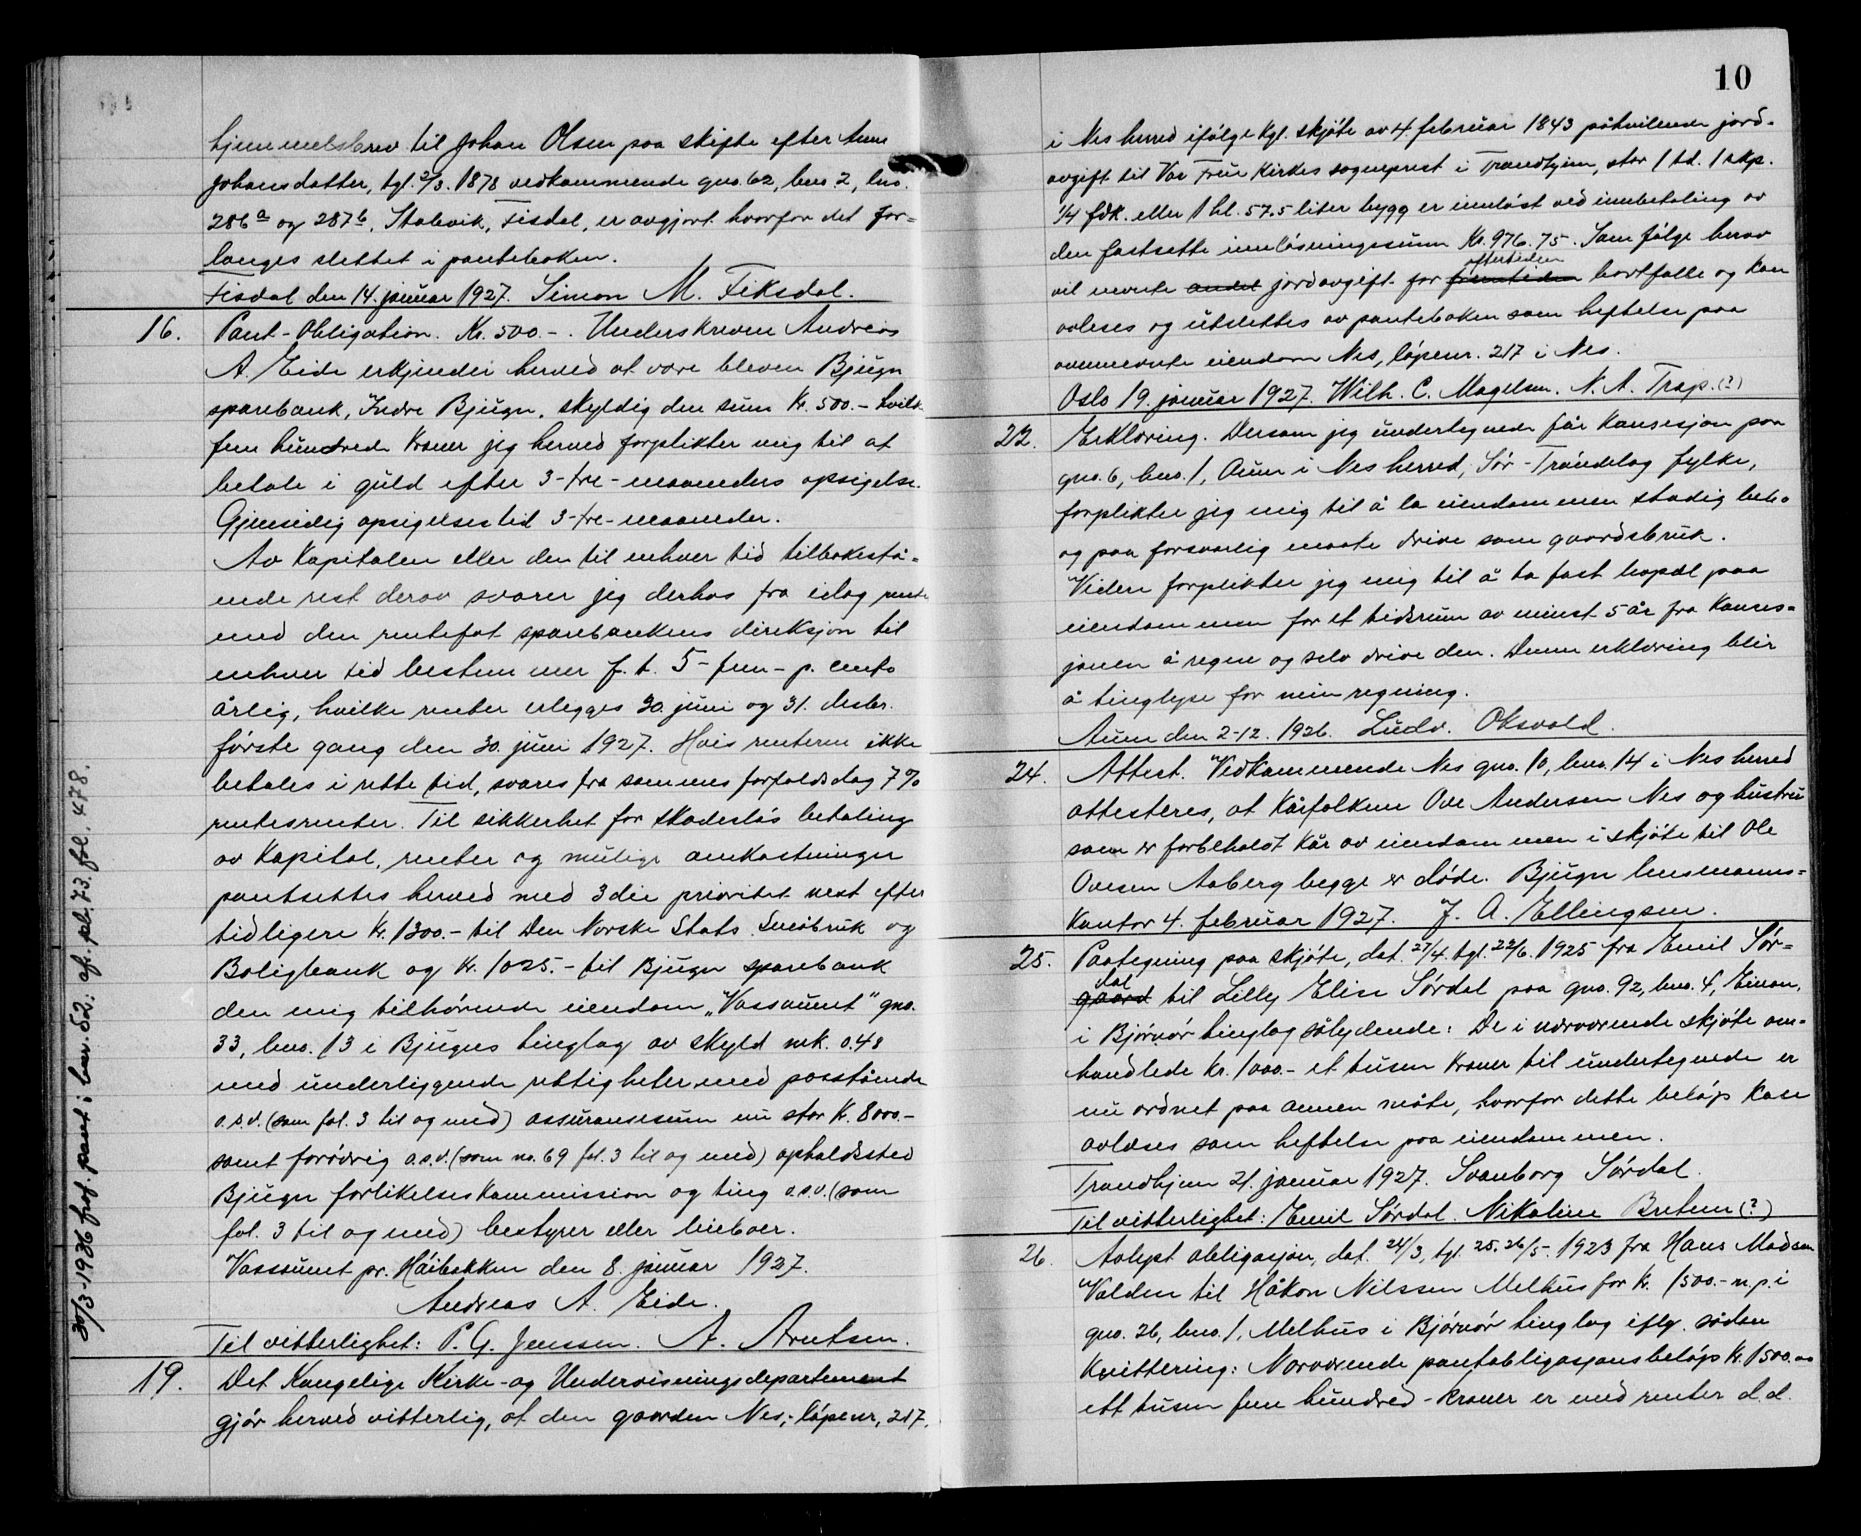 hjemmelsbrev til Johan Olsen paa skifte efter Anne
Johansdatter, tgl. 2/3. 1878 vedkommende gno. 62, bno. 2, lno.
286a og 287b, Stabvik, Fisdal, er avgjort hvorfor det for=
langes slettet i panteboken.
Fisdal den 14. januar 1927. Simon M. Fiksdal.
16. Pant-Obligation. Kr. 500.-. Underskreven Andreas
A. Eide erkjender herved at være bleven Bjugn
sparebank, Indre Bjugn, skyldig den sum Kr. 500.- hvilke
fem hundrede kroner jeg herved forplikter mig til at
betale i guld efter 3-tre-maaneders opsigelse.
Gjensidig opsigelsestid 3-tre-maaneder.
Av Kapitalen eller den til enhver tid tilbakestå=
ende rest derav svarer jeg derhos fra idag rente
med den rentefot sparebankens direksjon til
enhver tid bestemmer f. t. 5-fem-p. cento
årlig, hvilke renter erlegges 30. juni og 31. desbr.
første gang den 30. juni 1927. Hvis renterne ikke
betales i rette tid, svares fra sammes forfaldsdag 7%
rentesrenter. Til sikkerhet for skadesløs betaling
av Kapital, renter og mulige omkostninger
pantsettes herved med 3die prioritet nest efter
tidligere Kr. 1300.- til Den Norske Stats Småbruk og
Boligbank og Kr. 1025.- til Bjugn sparebank
den mig tilhørende eiendom "Vassaunet" gno.
33, bno. 13 i Bjugns tinglag av skyld mrk. 0.48
med underliggende rettigheter med påstående
o.s.v. (som fol. 3 til og med) assuransesum nu stor Kr. 8000.-
samt forøvrig o.s.v. (som no. 69 fol. 3 til og med) opholdssted
Bjugn forlikelseskommission og ting o.s.v. (som
fol. 3 til og med) bestyrer eller beboer.
Vassaunet pr. Høibakken den 8. januar 1927.
Andreas A. Eide.
Til vitterlighet: P. G. Jenssen. A. Arntsen.
19. Det Kongelige Kirke- og Undervisningsdepartement
gjør herved vitterlig, at den gaarden Nes, løpenr. 217,
30/3-1936 fraf. pant i bnr. 52: af. pb. 73. fol. 478.
10
i Nes herred ifølge kgl. skjøte av 4. februar 1843 påhvilende jord-
avgift til Vor Frue Kirkes sogneprest i Trondhjem, stor 1 td. 1 skp.
1/4 fdk. eller 1 hl. 57.5 liter bygg er innløst ved innbetaling av
den fastsette innløsningssum Kr. 976.75. Som følge herav
eftertiden
vil nevnte andel jordavgift for fremtiden bortfalle og kan
avleses og utslettes av panteboken som heftelse paa
ovennevnte eiendom Nes, løpenr. 217 i Nes.
Oslo 19. januar 1927. Wilh. C. Magelsen. N. A. Trap. (?)
22. Erklæring. Dersom jeg undertegnede får konsesjon paa
gno. 6, bno. 1, Aune i Nes herred, Sør-Trøndelag fylke,
forplikter jeg mig til å la eiendommen stadig bebo
og paa forsvarlig maate drive som gaardsbruk.
Videre forplikter jeg mig til å ta fast bopæl paa
eiendommen for et tidsrum av minst 5 år fra konses=
jonen å regne og selv drive den. Denne erklæring blir
å tinglyse for min regning.
Aune den 2-12. 1926. Ludv. Oksvold.
24. Attest. Vedkommende Nes gno. 10, bno. 14 i Nes herred
attesteres, at kårfolkene Ove Andersen Nes og hustru
som er forbeholdt kår av eiendommen i skjøte til Ole
Ovesen Aaberg begge er døde. Bjugn lensmanns=
kontor 4. februar 1927. J. A. Ellingsen.
25. Paategning paa skjøte, dat. 27/4. tgl. 22/6. 1925 fra Emil Sør=
dal
gaard til Lilly Elise Sørdal paa gno. 92, bno. 4, Einan,
i Bjørnør tinglag sålydende: De i nærværende skjøte om=
handlede Kr. 1000.- et tusen kroner til undertegnede er
nu ordnet paa annen måte, hvorfor dette beløp kan
avlæses som heftelse paa eiendommen.
Trondhjem 21. januar 1927. Svanborg Sørdal.
Til vitterlighet: Emil Sørdal. Nikoline Bretun (?)
26. Avlyst obligasjon, dat. 24/3, tgl. 25. 26/5. 1923 fra Hans Madsen
Valden til Håkon Nilssen Melhus for Kr. 1500.- m.p. i
gno. 26, bno. 1, Melhus i Bjørnør tinglag iflg. sådan
Kvittering: Nærværende pantobligasjonsbeløp Kr. 1500.00
ett tusen fem hundred - kroner er med renter d.d.